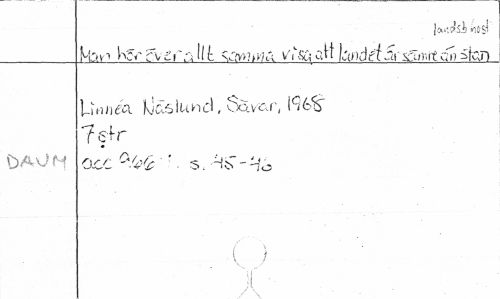 landsb höst
Man hör överallt samma visa att landet är sämre än stan
Linnéa Näslund, Sävar, 1968
7 str
DAUM acc s. 45-46